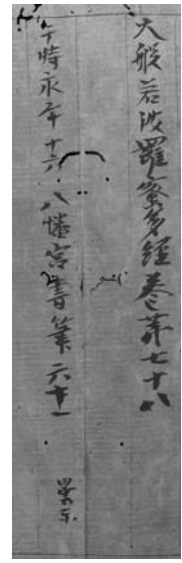 大般若波羅蜜多経巻第七十八
于時永享十六 八幡宮書筆六十一